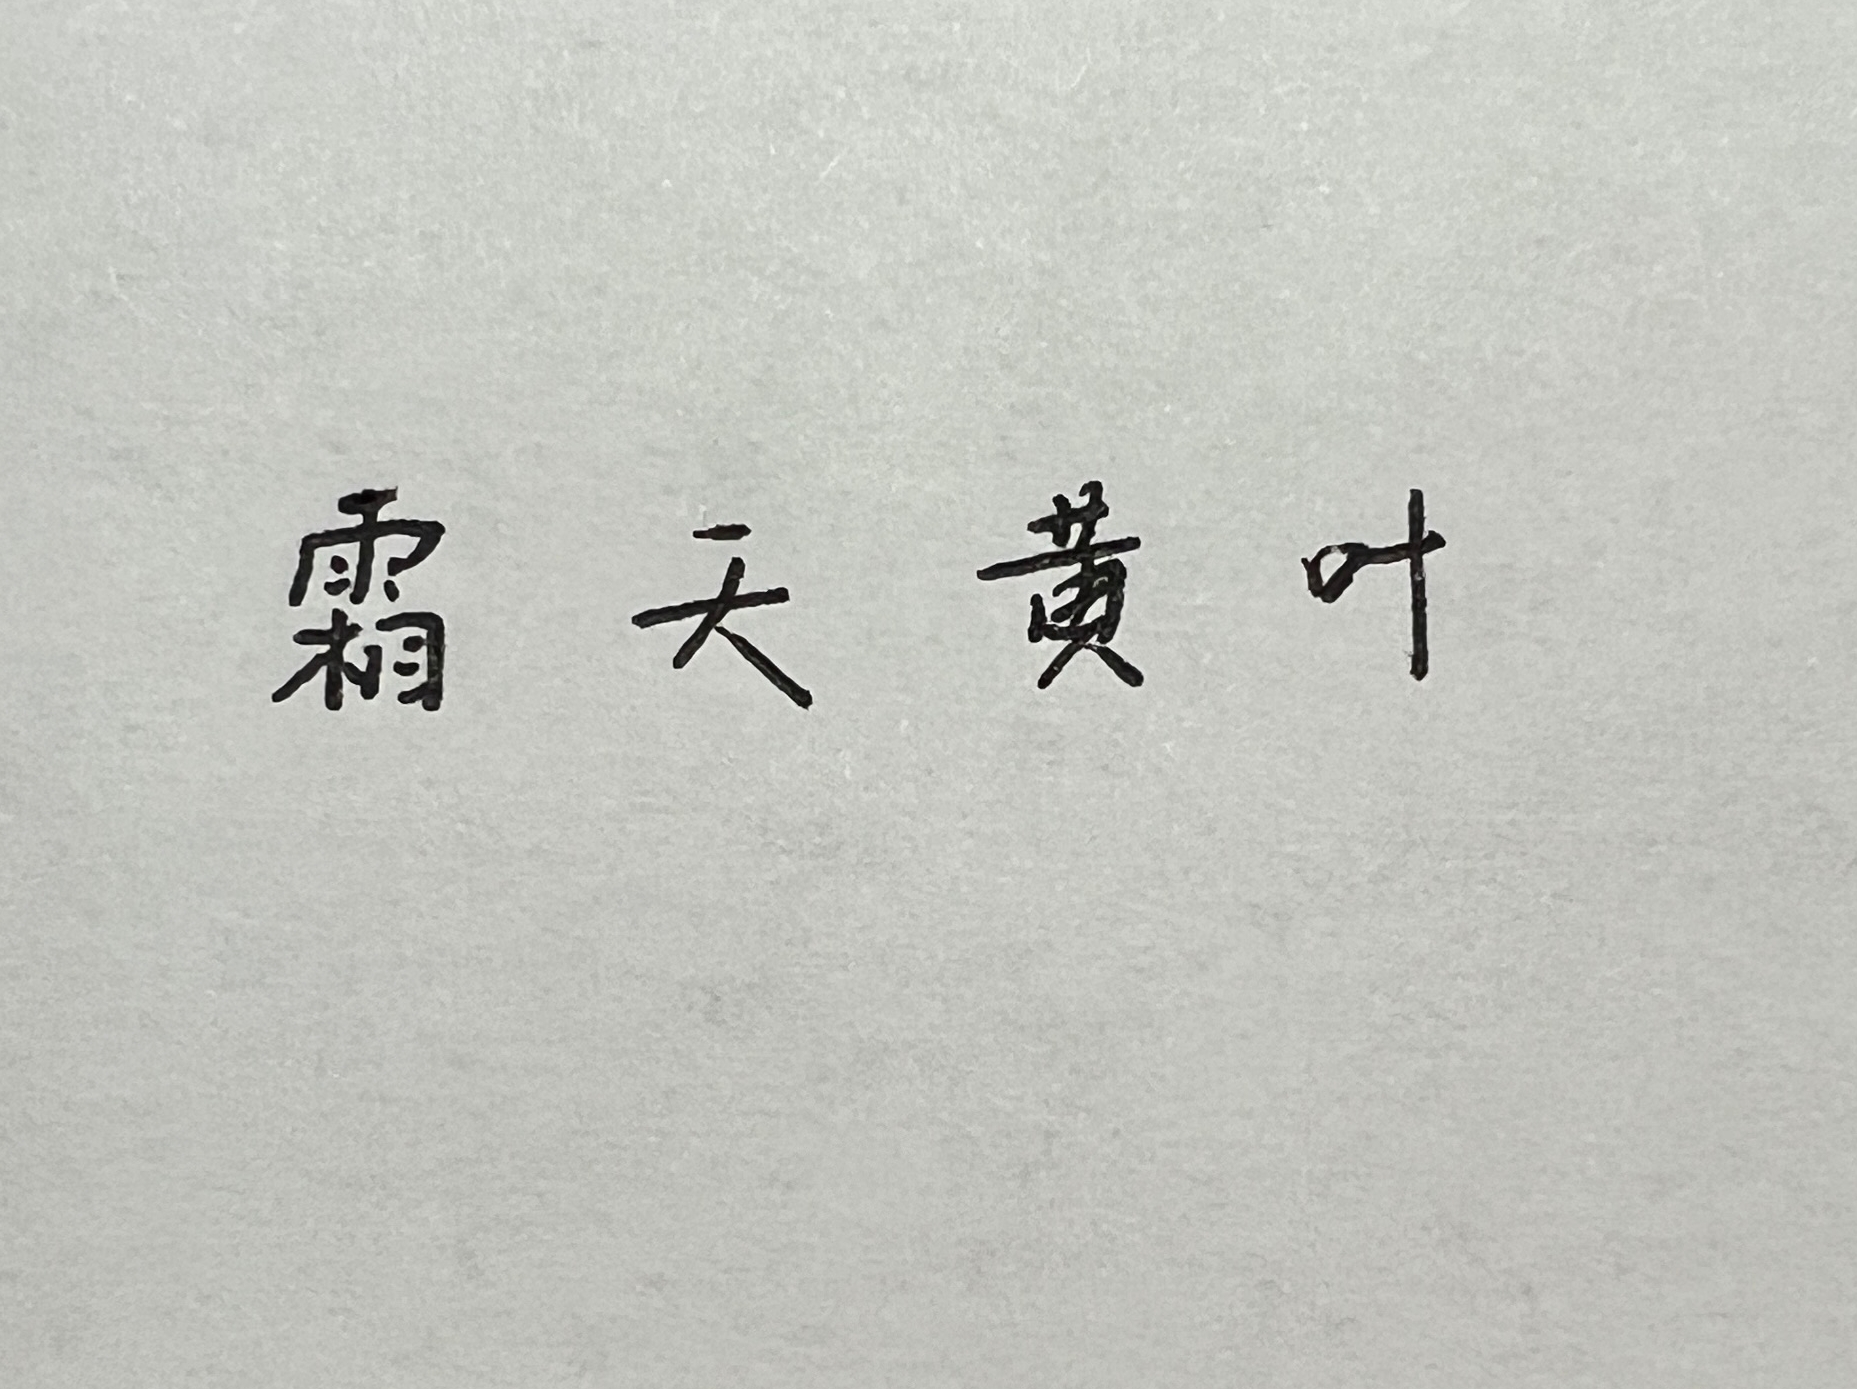 霜天黄叶